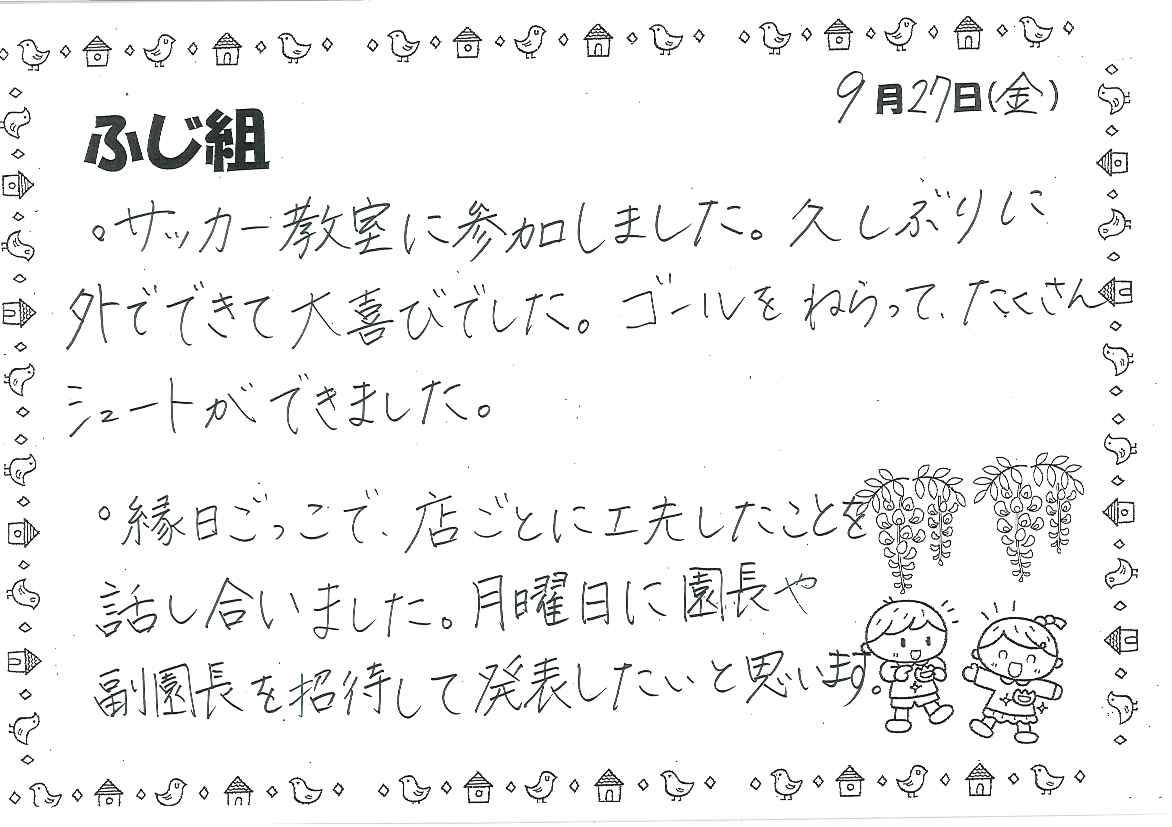 9月27日(金)
ふじ組
。サッカー教室に参加しました。久しぶりに
外でできて大喜びでした。ゴールをねらって、たくさん
シュートができました。
。縁日ごっこで、店ごとに工夫したことを
話し合いました。月曜日に園長や
副園長を招待して発表したいと思います。